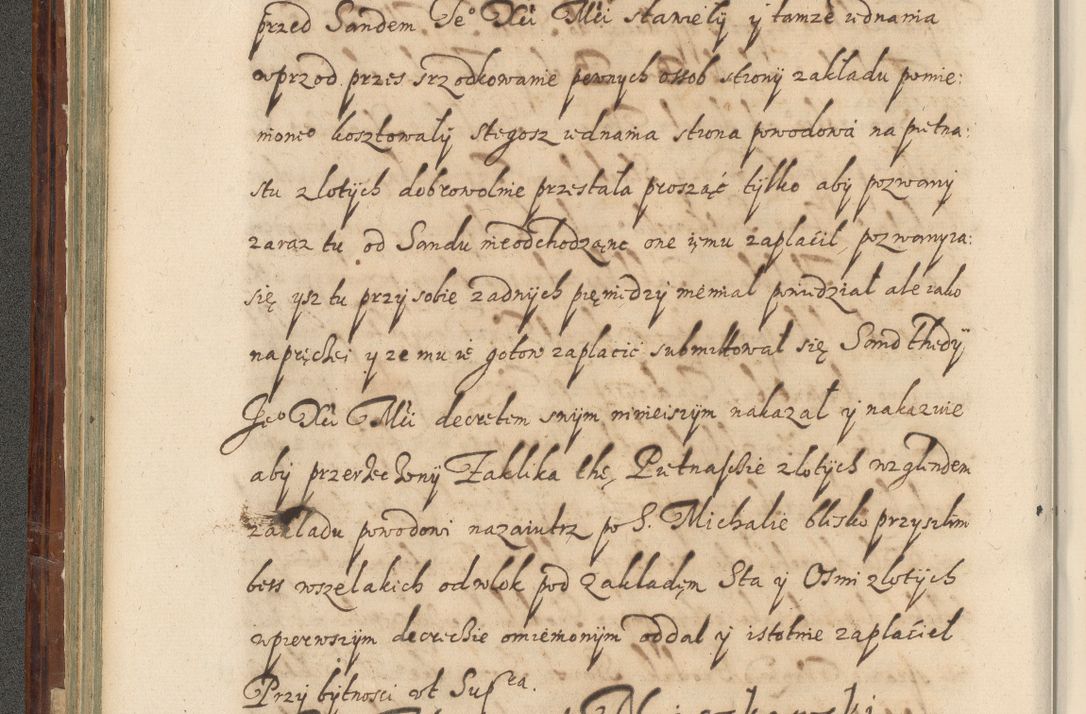 przed Sandem Je⁰ Xci Mci stawiely y tamze udnania
wprzod przes srzodkowanie pewnych osob strony zakladu pomie:
nione⁰ kosztowaly Stegosz udnania strona powodowa na pietna:
stu zlotych dobrowolnie przestala prosząć tylko aby pozwany
zaraz tu od Sandu nieodchodząnc one iemu zaplacil, pozwany za:
się ysz tu przy sobie zadnych pięniędzy niemial powiedzial ale iako
napręchei y ze mu ie gotow zaplacić submittowal się Sand thedy
Je⁰ Xci Mci decretem swym ninieiszym nakazal y nakazuie
aby przerzeczony Zaklika thę Pietnascie zlotych wzglendem
zakladu powodowi nazaiutrz po S. Michalie blisko przyszlym
bess wszelakich odwlok pod Zakladęm Sta y Osmi zlotych
wpierwszym decrecie omienionym oddal y istotnie zaplaciel
Przy bytnosci ut Supra.